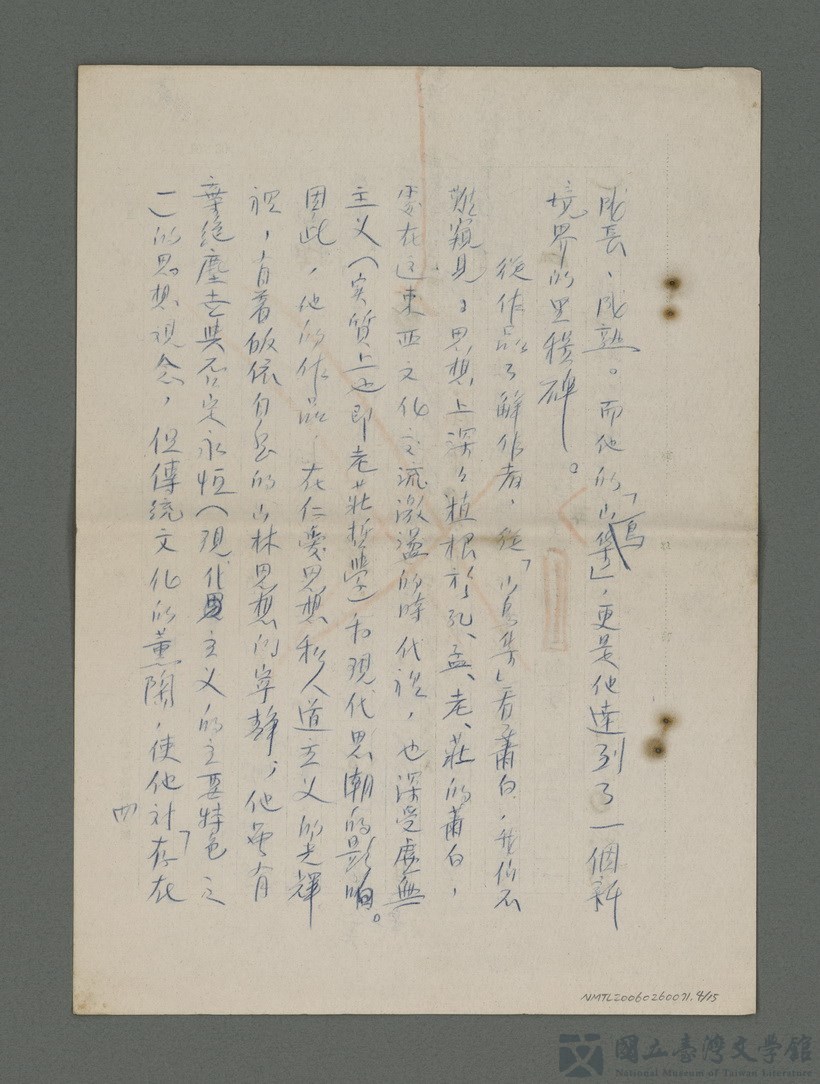 成長、成熟。而他的「山鳥集」,更是他達到了一個新
境界的里程碑。
從作品了解作者,從「山鳥集」看蕭白,我們不
難窺見:思想上深々植根於孔、孟、老、莊的蕭白,
處在这東西文化交流激盪的時代裡,也深受虛無
主义(实質上也即老莊哲學)和現代思潮的影响。
因此,他的作品,在仁愛思想和人道主义的光輝
裡,有着皈依自然的山林思想的寧靜;他雖有
棄絕塵世與否定永恒(現代主义的主要特色之
一)的思想視念,但傳統文化的薰陶,使他对「存在
四
NMTL20060260071.4/15
國立臺灣文學館
National Museum of Taiwan Literature